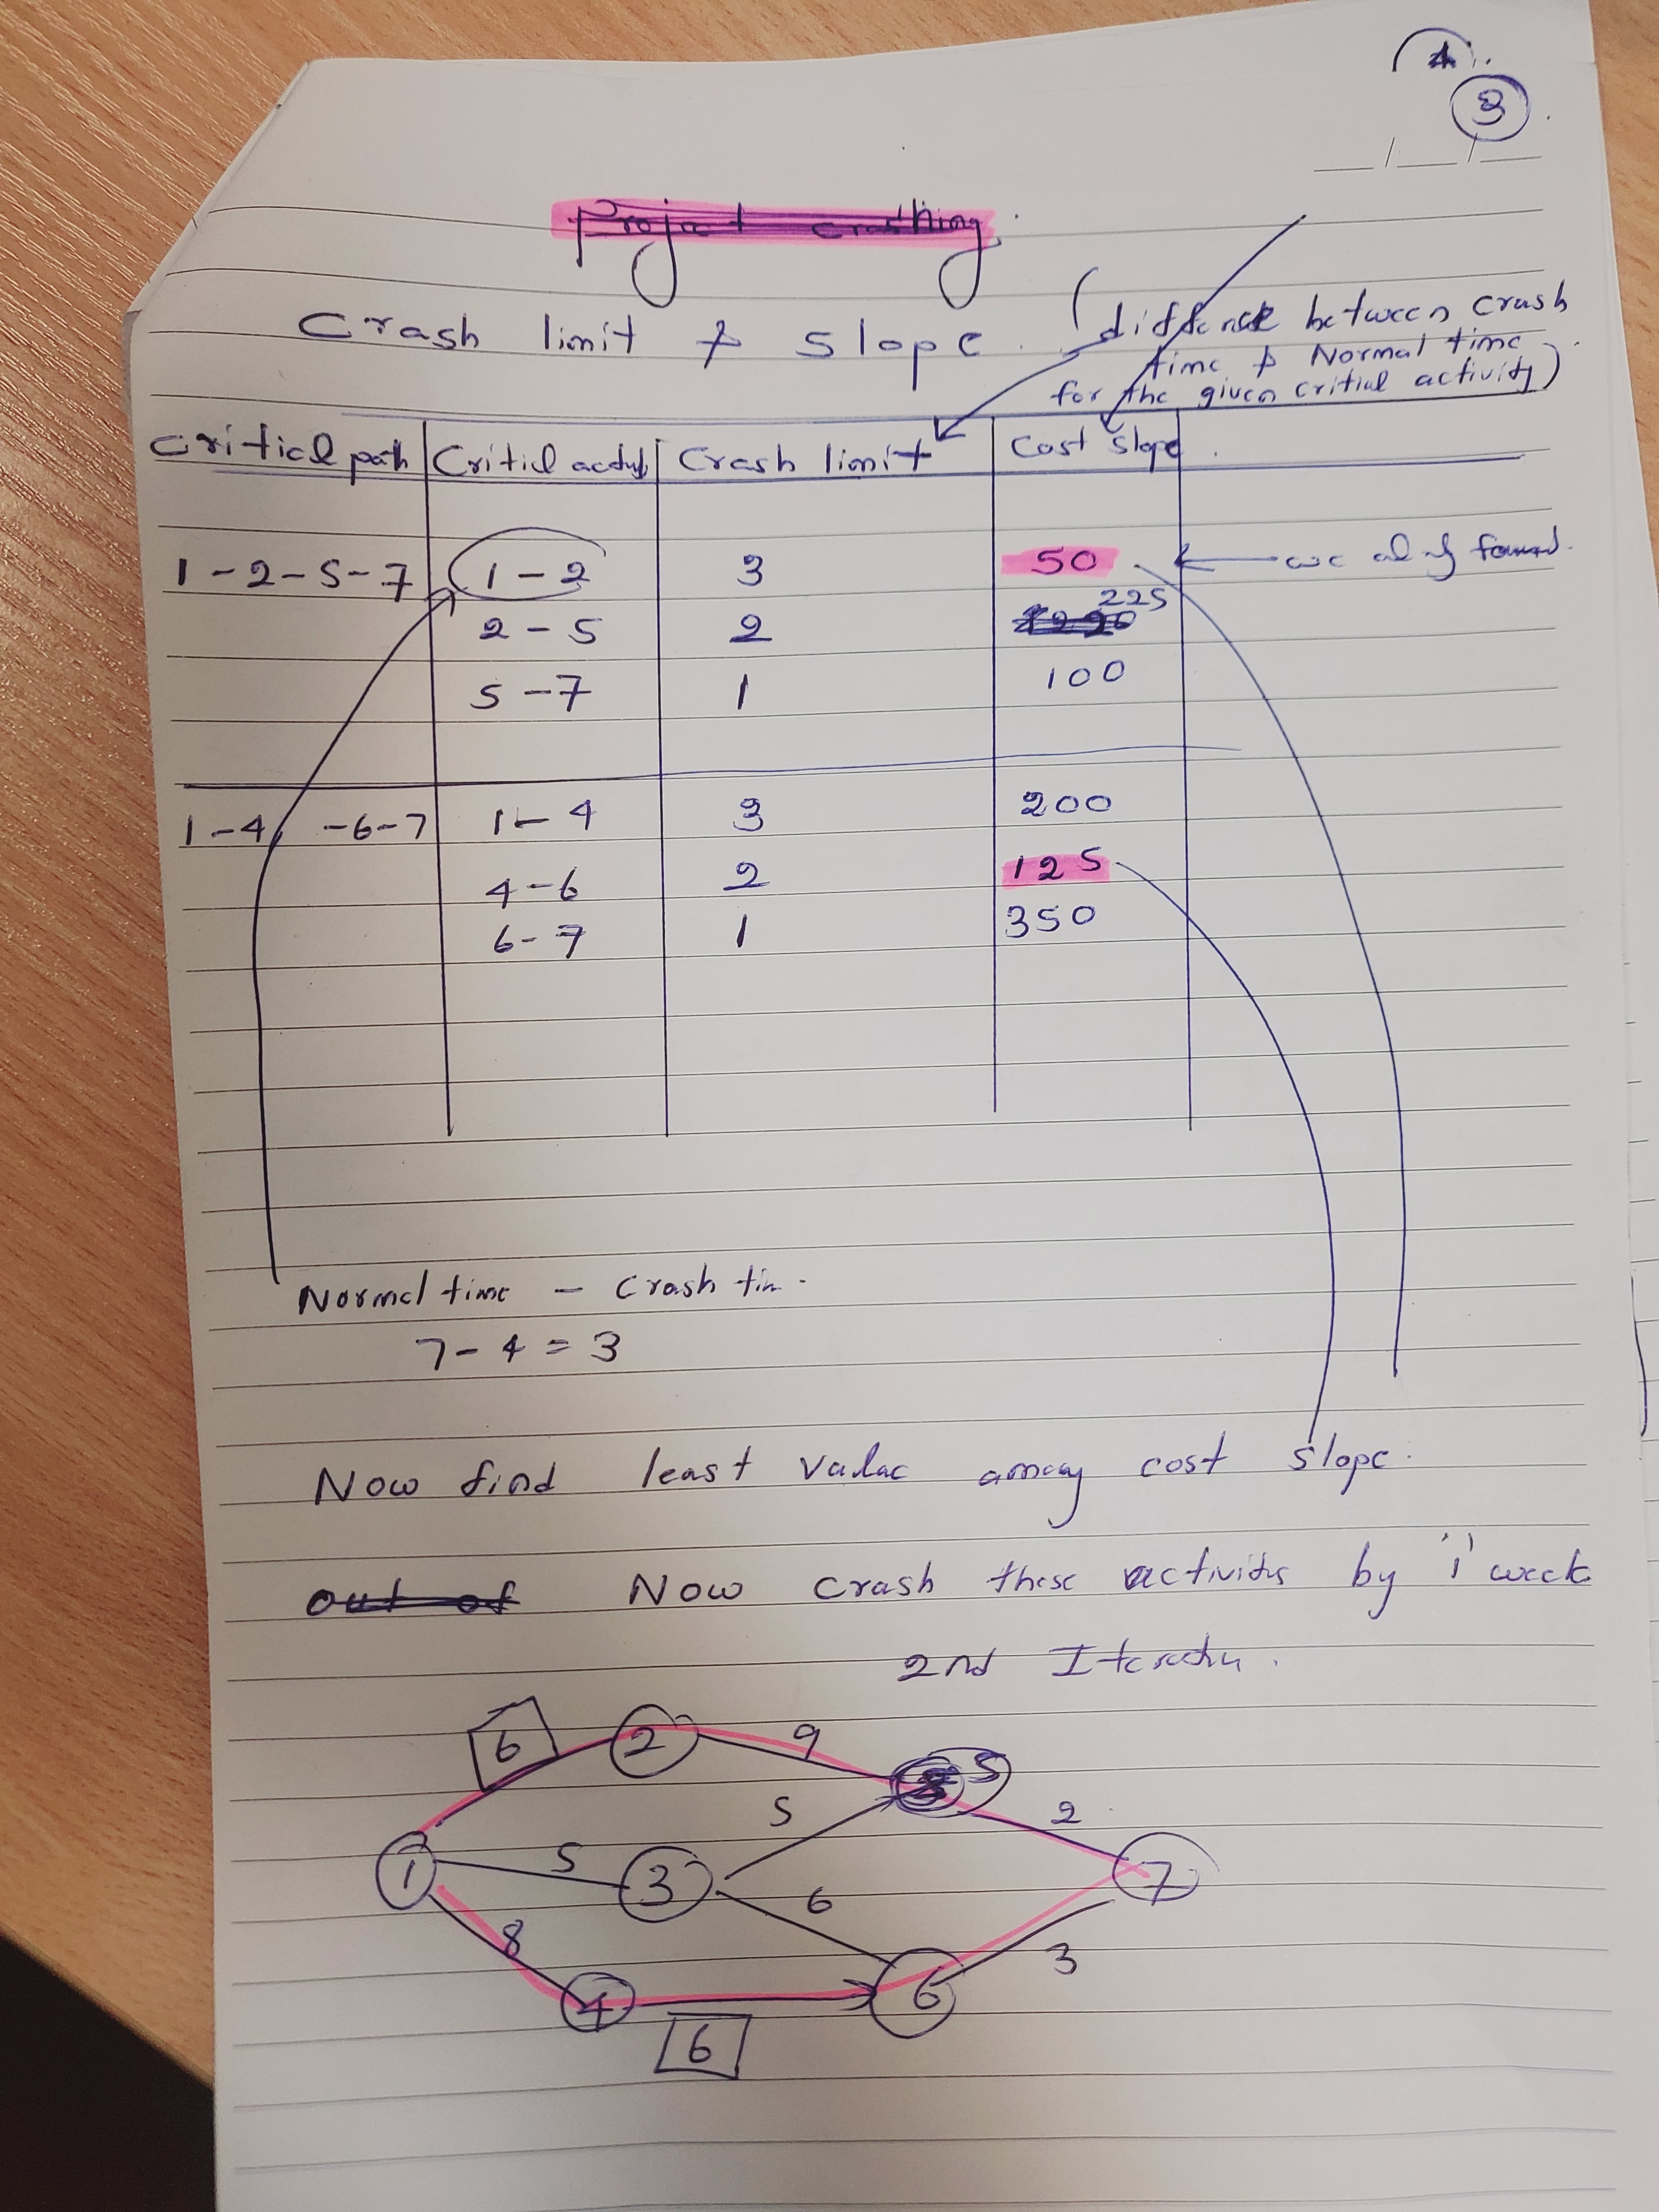 3
__/__/__
Project crashing
Crash limit & slope
(difference between crash
time & Normal time
for the given critial activity)
Critical path Critial activity Crash limit Cost Slope
1-2-5-7 1-2 3 50 ← we al found.
2-5 2 225
5-7 1 100
1-4-6-7 1-4 3 200
4-6 2 125
6-7 1 350
Normal time - Crash tim
7-4=3
Now find least value among cost slope.
out of Now crash these activitis by '1' week
2nd Iteration.
6 2 9 5
5 2
1 5 3 7
6
8 3
4 6
6